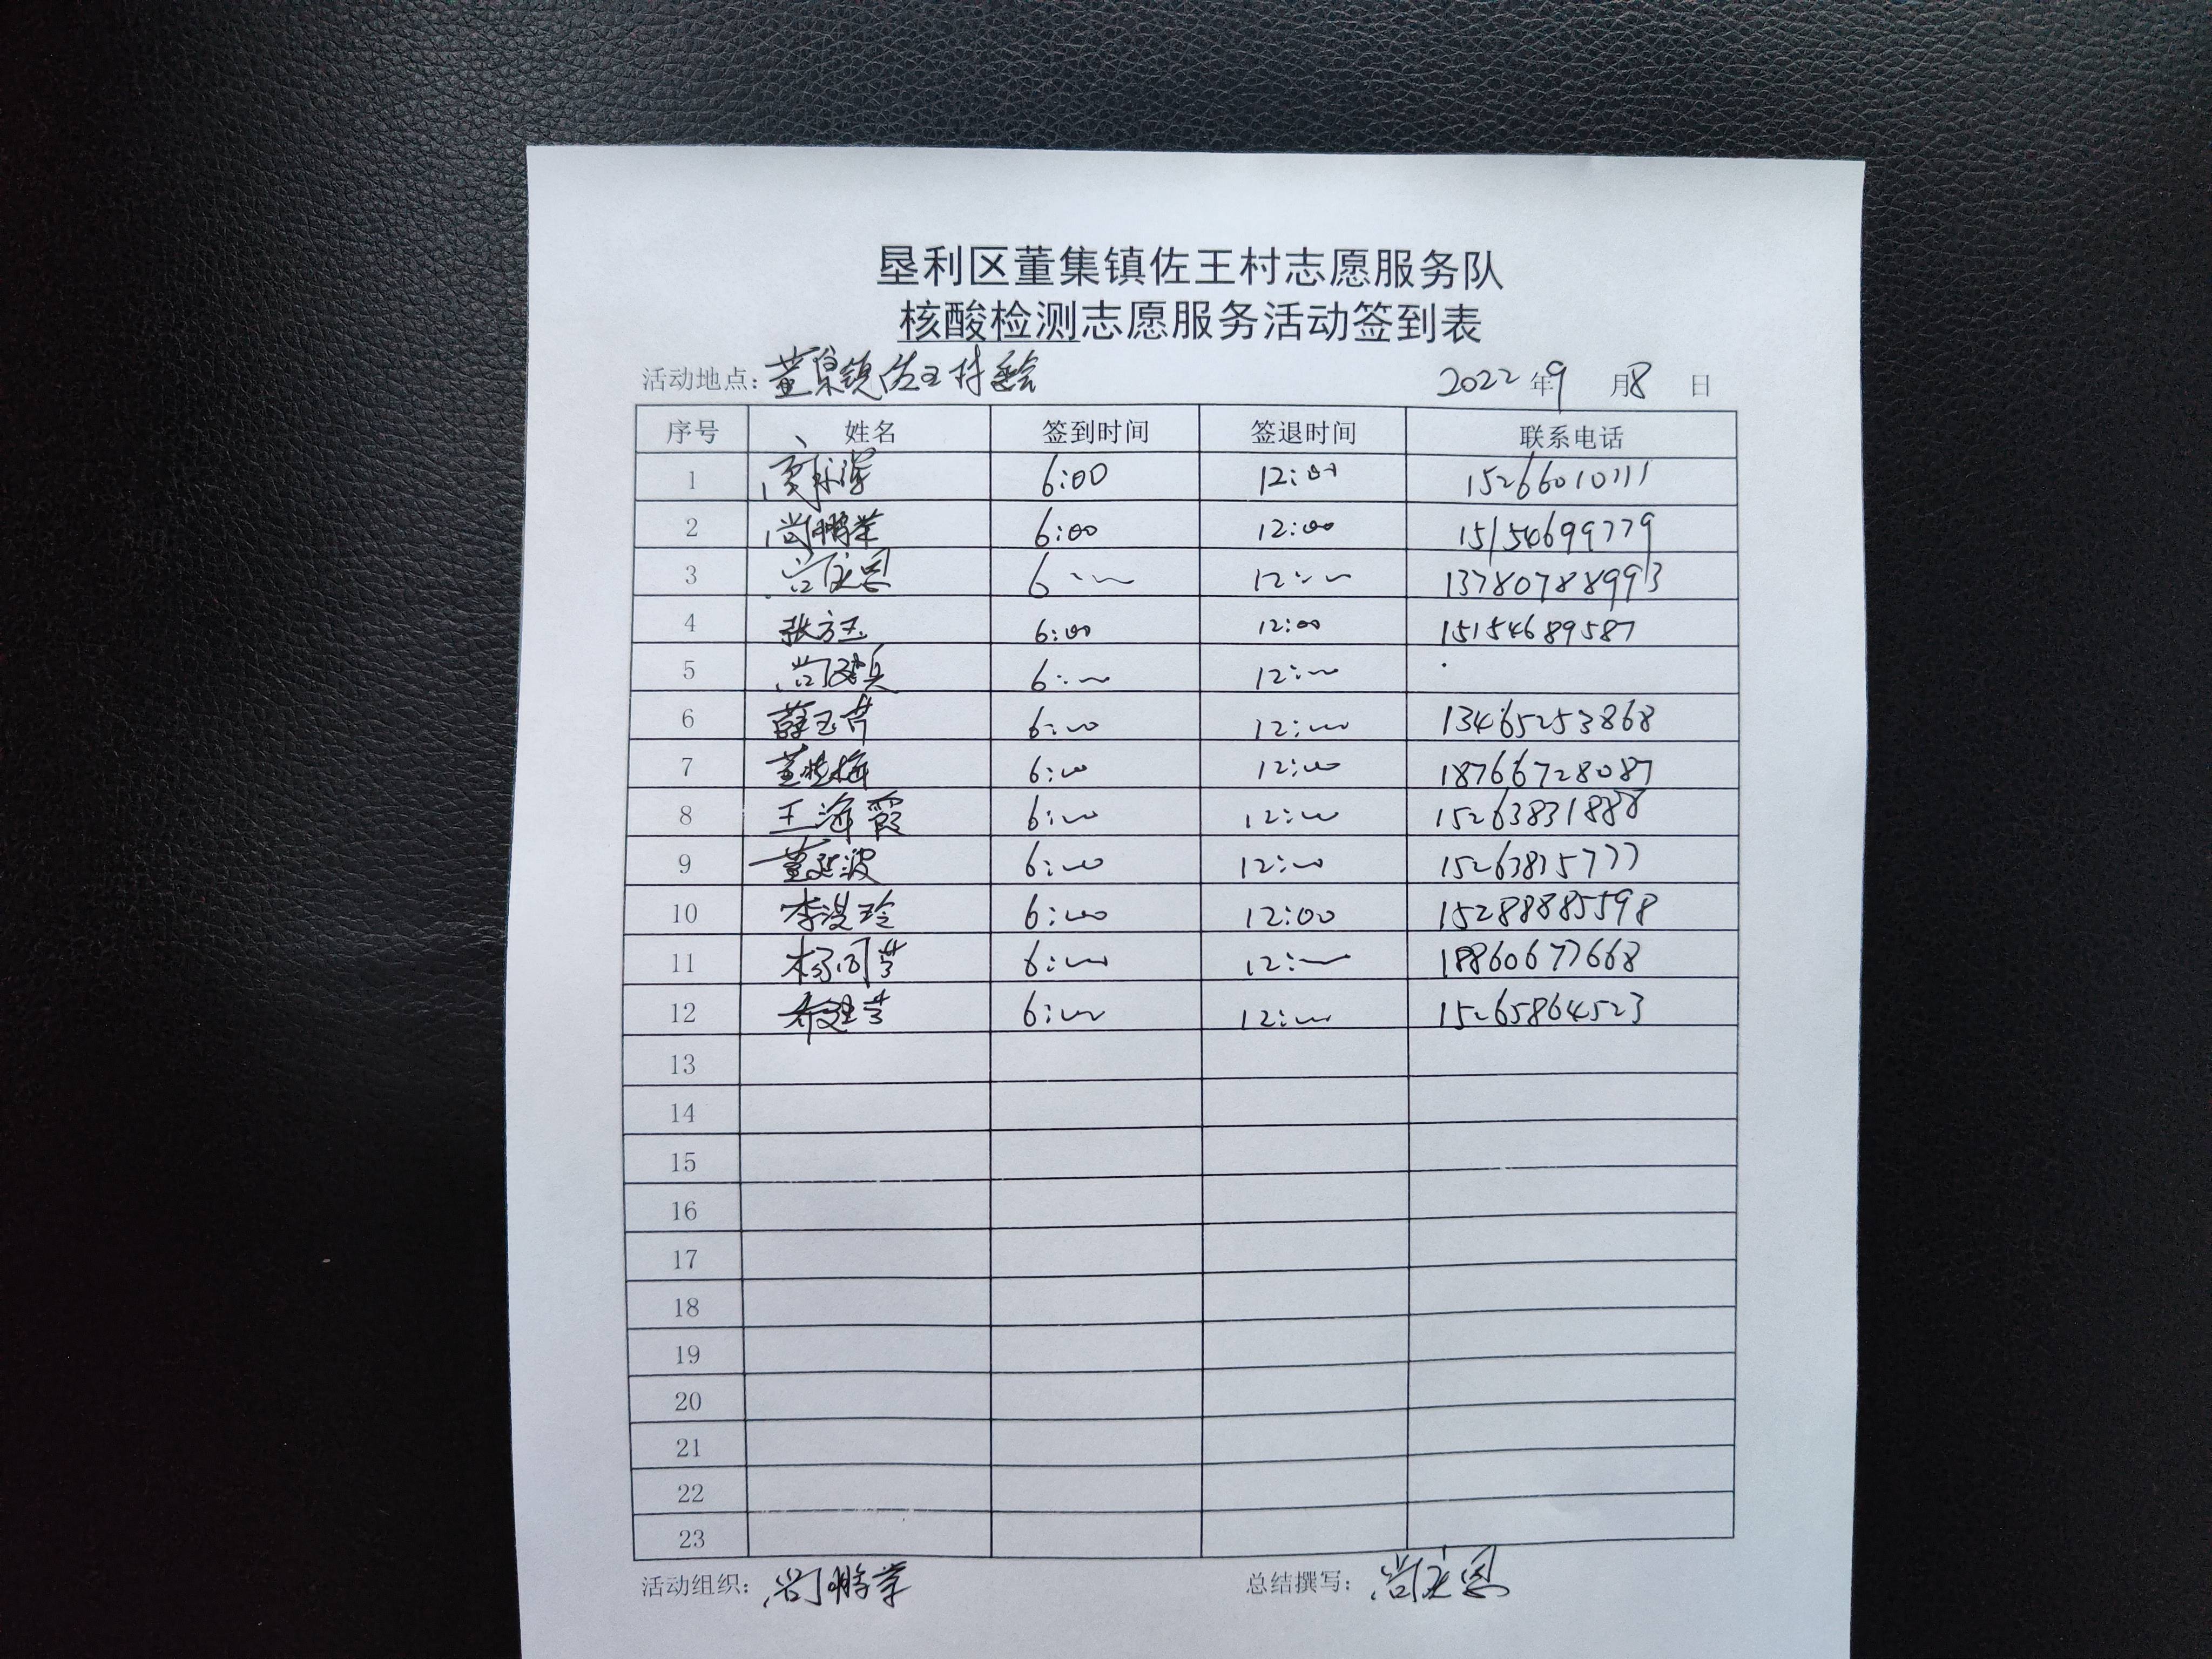 垦利区董集镇佐王村志愿服务队
核酸检测志愿服务活动签到表
活动地点：董集镇佐王村委会 2022年9月8日
序号 姓名 签到时间 签退时间 联系电话
1 6:00 12:00 15266010711
2 尚鹏举 6:00 12:00 15154699779
3 6:00 12:00 13780788993
4 张方玉 6:00 12:00 15154689587
5 6:00 12:00
6 薛玉芹 6:00 12:00 13465253868
7 6:00 12:00 18766728087
8 王海霞 6:00 12:00 15263831888
9 董延波 6:00 12:00 15263815777
10 6:00 12:00 15288885598
11 6:00 12:00 18860677668
12 6:00 12:00 15265864523
13
14
15
16
17
18
19
20
21
22
23
活动组织：尚鹏举 总结撰写：